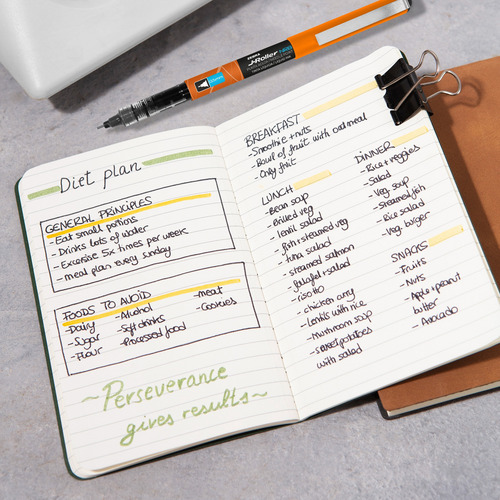 ZEBRA
J-Roller RX
Diet plan
GENERAL PRINCIPLES
- Eat small portions
- Drinks lots of water
- Excersise 5x times per week
- meal plan every sunday
FOODS TO AVOID
- Dairy
- Sugar
- Flour
- Alcohol
- Soft drinks
- Processed food
- meat
- Cookies
~Perseverance
gives results~
BREAKFAST
- Smoothie + nuts
- Bowl of fruit with oatmeal
- Only fruit
LUNCH
- Bean soup
- Grilled veg
- lentil salad
- fish + steamed veg
- tuna salad
- steamed salmon
- falafel + salad
- risotto
- chicken curry
- lentils with rice
- Mushroom soup
- sweet potatoes
with salad
DINNER
- Rice + veggies
- Salad
- Veg soup
- steamed fish
- Rice salad
- Veg. burger
SNACKS
- Fruits
- Nuts
- Apple + peanut
butter
- Avocado